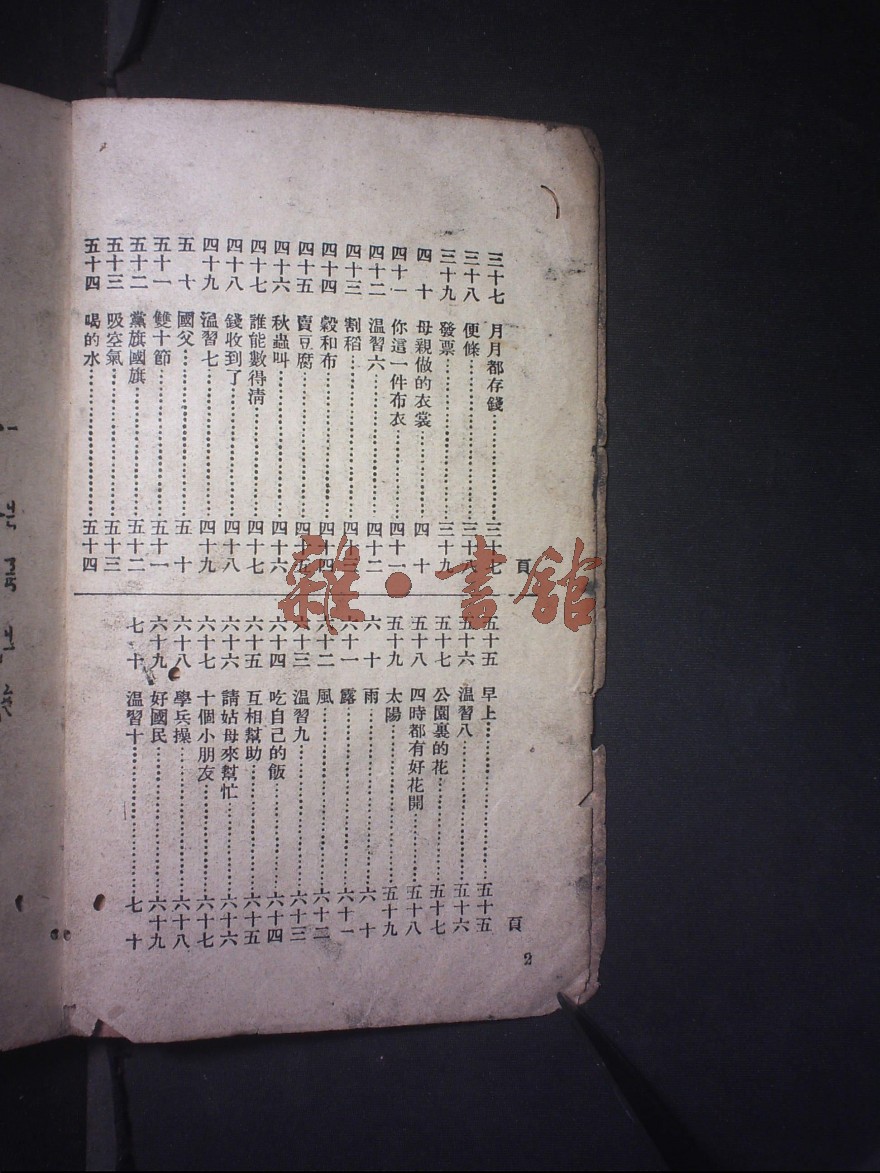 頁
三十七 月月都存錢 三十七
三十八 便條 三十八
三十九 發票 三十九
四十 母親做的衣裳 四十
四十一 你這一件布衣 四十一
四十二 溫習六 四十二
四十三 割稻 四十三
四十四 穀和布 四十四
四十五 賣豆腐 四十五
四十六 秋蟲叫 四十六
四十七 誰能數得清 四十七
四十八 錢收到了 四十八
四十九 溫習七 四十九
五十 國父 五十
五十一 雙十節 五十一
五十二 黨旗國旗 五十二
五十三 吸空氣 五十三
五十四 喝的水 五十四
頁
五十五 早上 五十五
五十六 溫習八 五十六
五十七 公園裏的花 五十七
五十八 四時都有好花開 五十八
五十九 太陽 五十九
六十 雨 六十
六十一 露 六十一
六十二 風 六十二
六十三 溫習九 六十三
六十四 吃自己的飯 六十四
六十五 互相幫助 六十五
六十六 請姑母來幫忙 六十六
六十七 十個小朋友 六十七
六十八 學兵操 六十八
六十九 好國民 六十九
七十 溫習十 七十
2
雜·書館